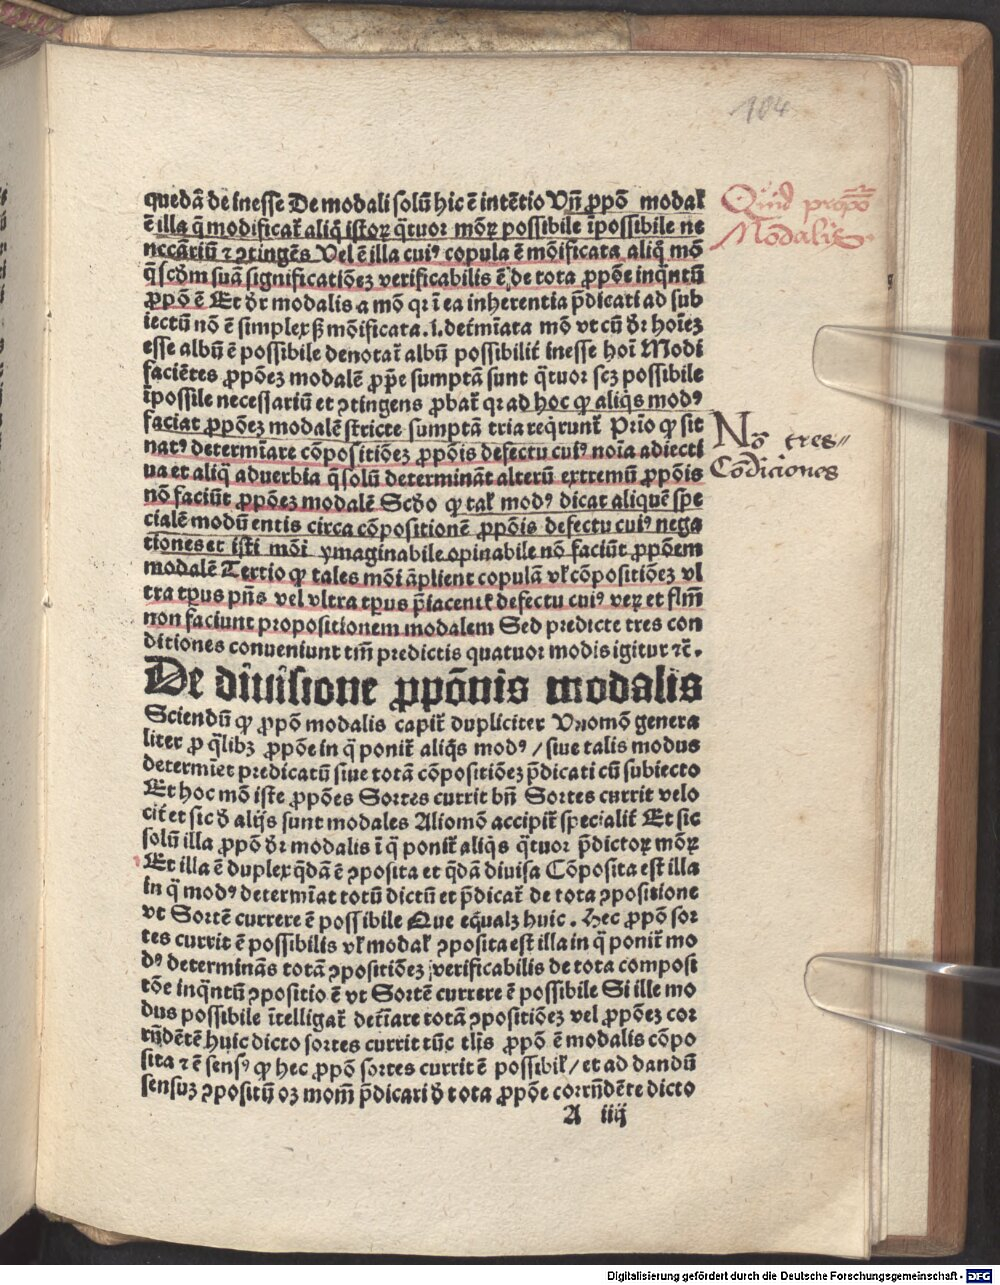 184
quedā de inesse De modali solū hic ē intētio Vn̄ ꝓpō modaꝉ
ē illa q̄ modificat᷑ aliq̄ istoꝝ q̄tuor moꝝ possibile īpossibile ne
neccāriū ⁊ ↄtingēs Vel ē illa cuiꝰ copula ē mōificata aliq̄ mō
q̄ scd̄m suā significatiōeꝫ verificabilis ē de tota ꝓpōe inq̄ntū
ꝓpō ē Et dr̄ modalis a mō qꝛ ī ea inherentia p̄dicati ad sub
iectū nō ē simplex ſꝫ mōificata .i. detmīata mō vt cū dr̄ hoīeꝫ
esse albū ē possibile denotat᷑ albū possibilit᷑ inesse hoī Modi
faciētes ꝓpōeꝫ modalē ꝓpe sumptā sunt q̄tuor scꝫ possibile
īpossile necessariū et ↄtingens ꝓbat᷑ qꝛ ad hoc ꝙ aliq̄s modꝰ
faciat ꝓpōeꝫ modalē stricte sumptā tria req̄runt᷑ Prīo ꝙ sit
natꝰ determīare cōpositiōeꝫ ꝓpōis defectu cuiꝰ noīa adiecti
ua et aliq̄ aduerbia q̄ solū determināt alterū extremū ꝓpōis
nō faciūt ꝓpōeꝫ modalē Scd̄o ꝙ tal᷑ modꝰ dicat aliquē spe
cialē modū entis circa cōpositionē ꝓpōis defectu cuiꝰ nega
tiones et isti mōi ymaginabile opinabile nō faciūt ꝓpōem
modalē Tertio ꝙ tales mōi āplient copulā vꝉ cōpositiōeꝫ vl
tra tꝑus pn̄s vel vltra tꝑus p̄iacens defectu cuiꝰ veꝝ et flm̄
non faciunt propositionem modalem Sed predicte tres con
ditiones conueniunt tm̄ predictis quatuor modis igitur ⁊c̄.
De diuisione ꝓpōnis modalis
Sciendū ꝙ ꝓpō modalis capit᷑ dupliciter Vnomō genera
liter ꝓ q̄libꝫ ꝓpōe in q̄ ponit᷑ aliq̄s modꝰ / siue talis modus
determīet predicatū siue totā cōpositiōeꝫ p̄dicati cū subiecto
Et hoc mō iste ꝓpōes Sortes currit bn̄ Sortes currit velo
cit᷑ et sic d̄ alijs sunt modales Aliomō accipit᷑ specialit᷑ Et sic
solū illa ꝓpō dr̄ modalis ī q̄ ponit᷑ aliq̄s q̄tuor p̄dictoꝝ moꝝ
Et illa ē duplex q̄dā ē ↄposita et q̄dā diuisa Cōposita est illa
in q̄ modꝰ determīat totū dictū et p̄dicat᷑ de tota ↄpositione
vt Sortē currere ē possibile Que eq̄ualꝫ huic . Hec ꝓpō sor
tes currit ē possibilis vꝉ modaꝉ ↄposita est illa in q̄ ponit᷑ mo
dꝰ determinās totā ↄpositiōeꝫ verificabilis de tota composi
tōe inq̄ntū ↄpositio ē vt Sortē currere ē possibile Si ille mo
dus possibile ītelligat᷑ det̄iare totā ↄpositiōeꝫ vel ꝓpōeꝫ cor
rn̄dētē huic dicto sortes currit tūc tlis̄ ꝓpō ē modalis cōpo
sita ⁊ ē sensꝰ ꝙ hec ꝓpō sortes currit ē possibiꝉ / et ad dandū
sensuꝫ ↄpositū oꝫ mom̄ p̄dicari d̄ tota ꝓpōe corrn̄dēte dicto
A iiij
Quid propō
Modalis.
Nō tres
Cōdiciones
Digitalisierung gefördert durch die Deutsche Forschungsgemeinschaft - DFG